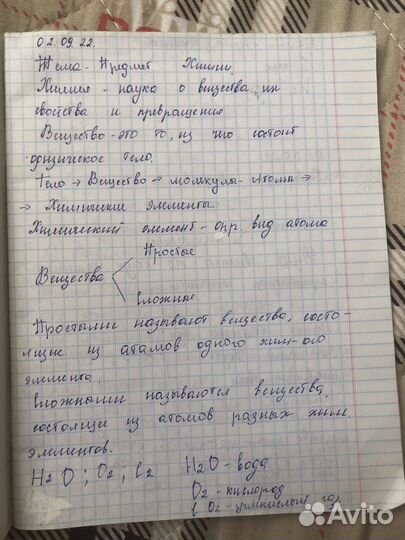 02.09.22.
Тема - Предмет Химии.
Химия - наука о вещества, их
свойства и превращение
Вещество - это то, из чего состоит
физическое тело.
Тело → Вещество → молекулы - Атомы →
→ Химические элементы.
Химический элемент - опр. вид атома
Простые
Вещества
Сложные
Простыми называют вещества, состо-
ящие из атамов одного хим-ого
элемента.
Сложными называются вещества,
состоящие из атомов разных хим.
элементов.
H2O ; O2 ; C2 H2O - вода
O2 - кислород
C O2 - углкислый газ
Avito